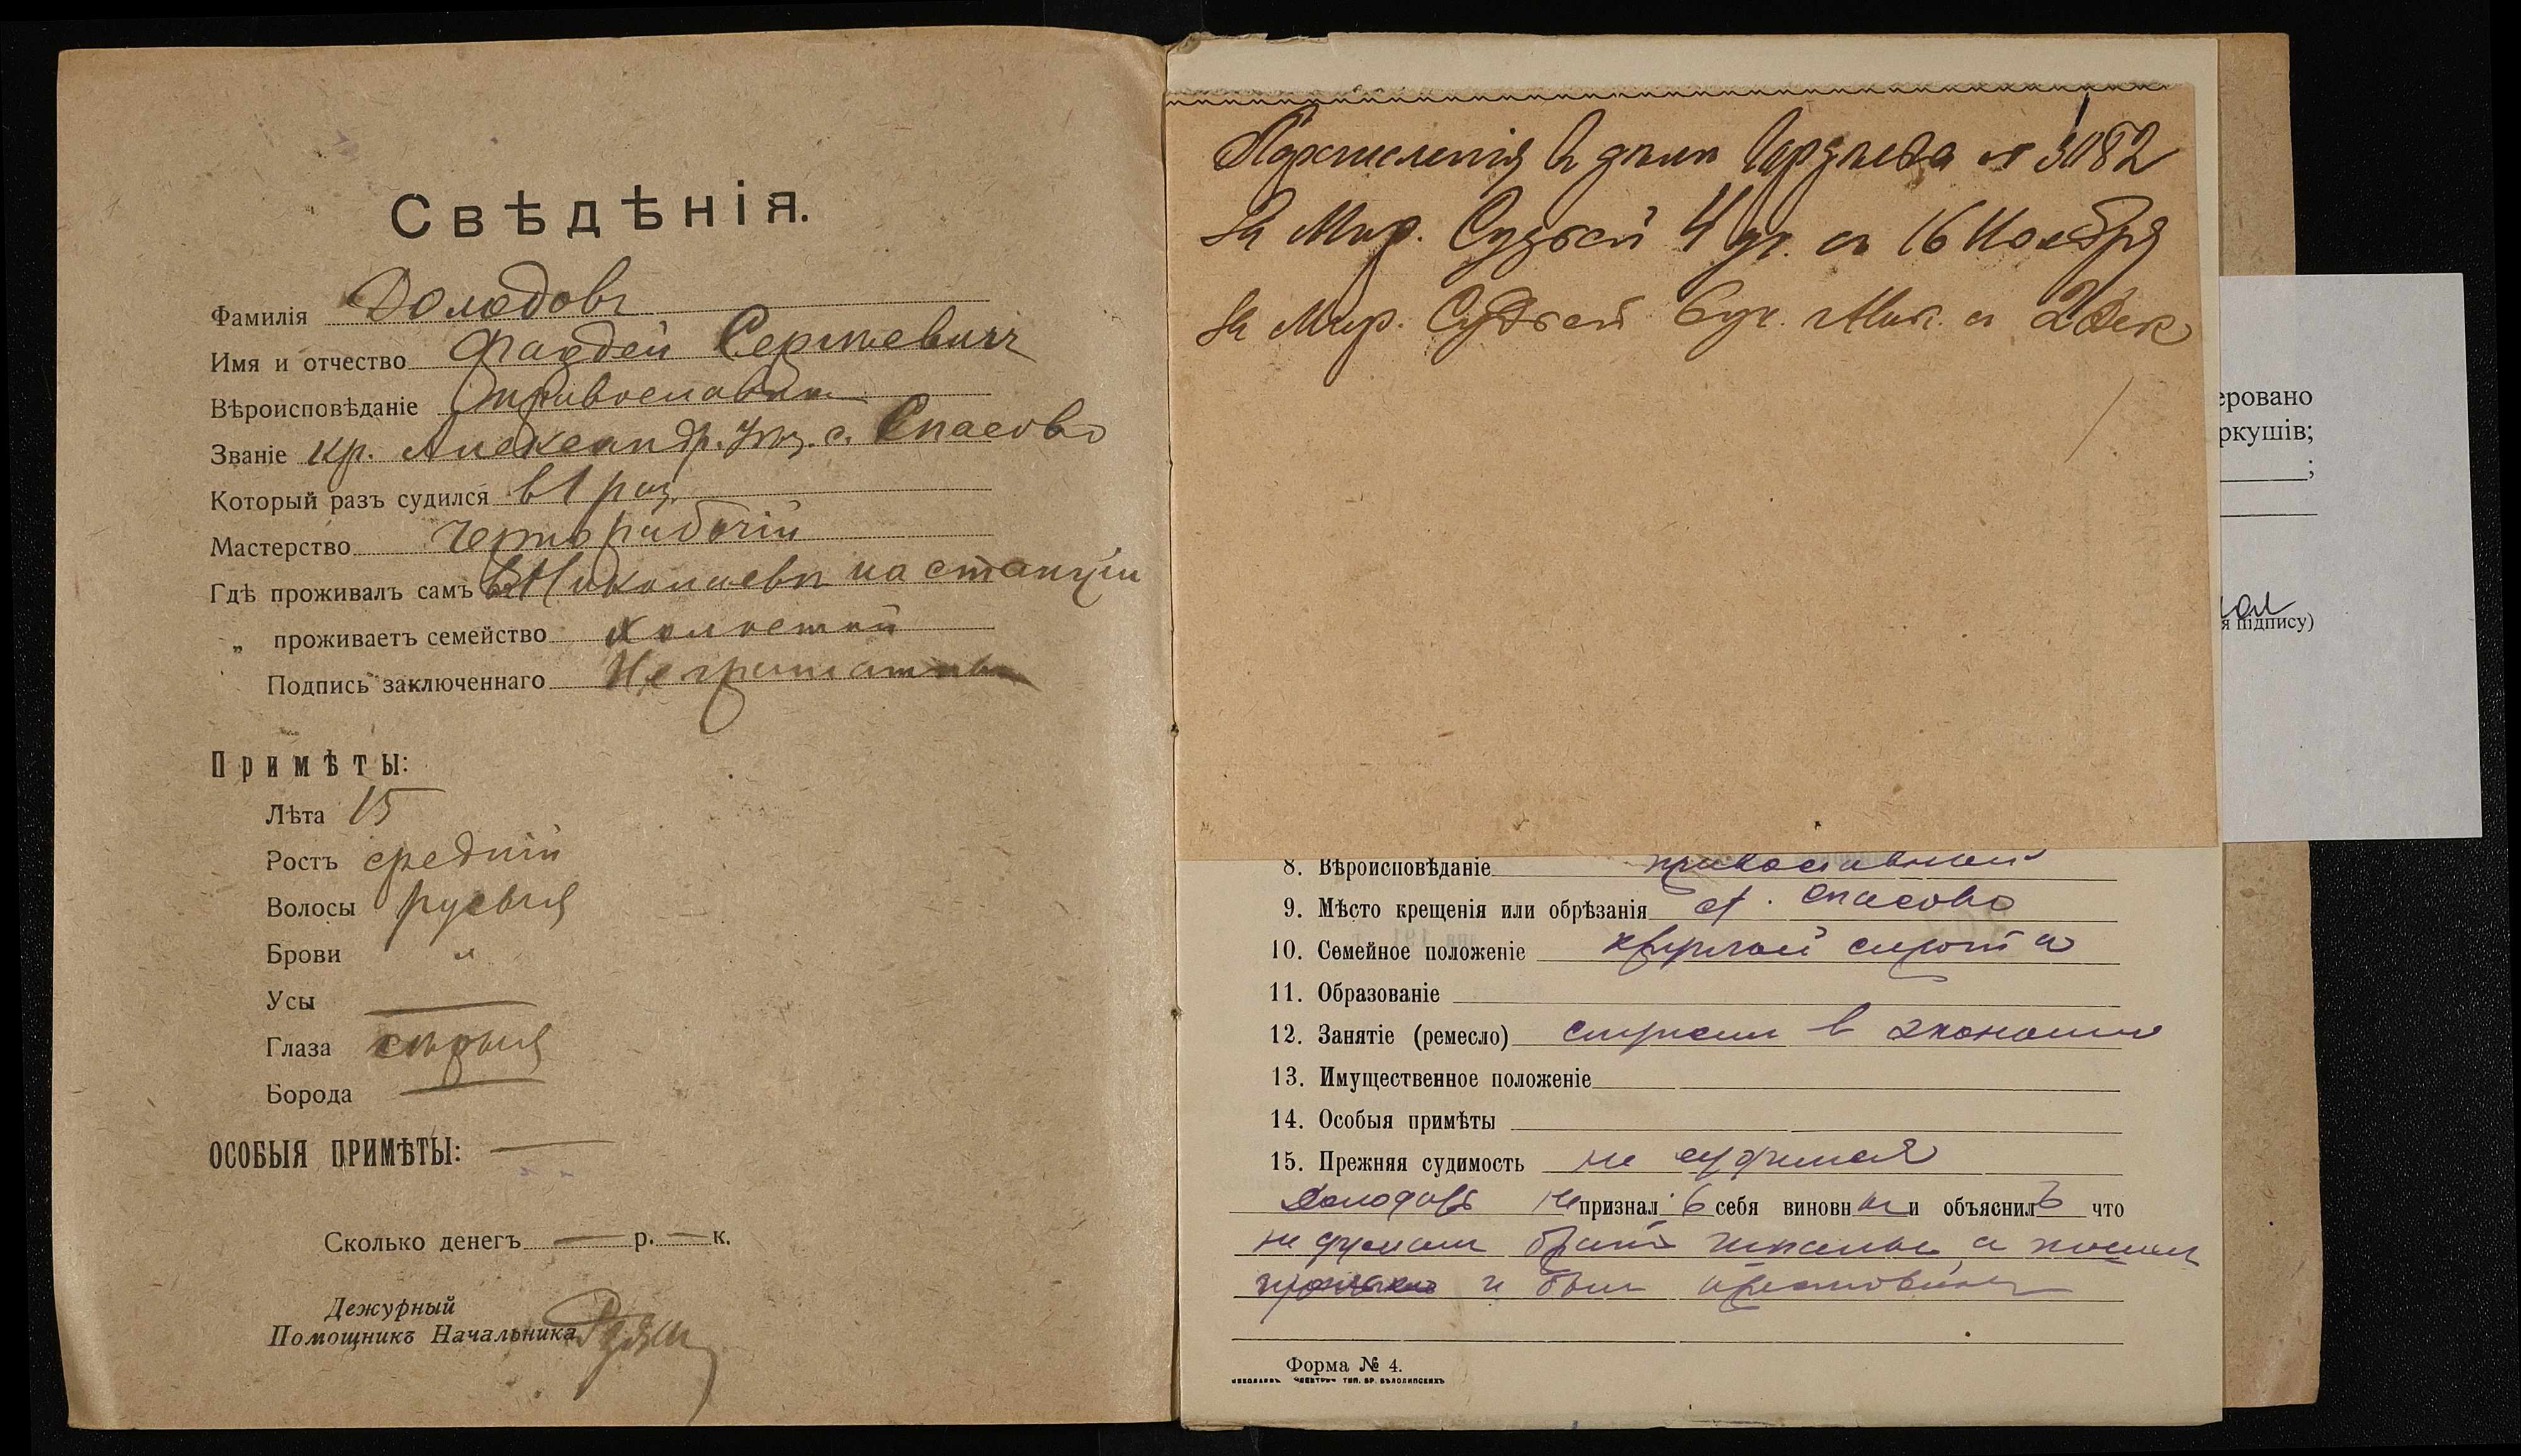 Свѣдѣнія.
Фамилія Холодовъ
Имя и отчество Фаддей Сергѣевичъ
Вѣроисповѣданіе православн
Званіе кр. Александр. уѣз. с. Спасово
Который разъ судился в 1 раз
Мастерство чернорабочій
Гдѣ проживалъ самъ въ Николаевѣ на станціи
„ проживаетъ семейство холостой
Подпись заключеннаго Неграмотный
Примѣты:
Лѣта 15
Ростъ средній
Волосы русыя
Брови „
Усы —
Глаза сѣрыя
Борода —
ОСОБЫЯ ПРИМѢТЫ: —
Сколько денегъ — р. — к.
Дежурный
Помощникъ Начальника
Перечисленія въ дѣлѣ № 3082
За Мир. Судьей 4 уч. съ 16 Ноября
За Мир. Судьей 6 уч. Ник. съ 2 Дек
8. Вѣроисповѣданіе православный
9. Мѣсто крещенія или обрѣзанія с. Спасово
10. Семейное положеніе круглый сирота
11. Образованіе
12. Занятіе (ремесло) служил в экономии
13. Имущественное положеніе
14. Особыя примѣты
15. Прежняя судимость не судился
Холодовъ не призналъ себя виновным и объяснилъ что
не думал брать а пошел
и был арестован
Форма № 4.
НИКОЛАЕВЪ. ЭЛЕКТРИЧ. ТИП. БР. БѢЛОЛИПСКИХЪ
еровано
ркушів;
;
я підпису)